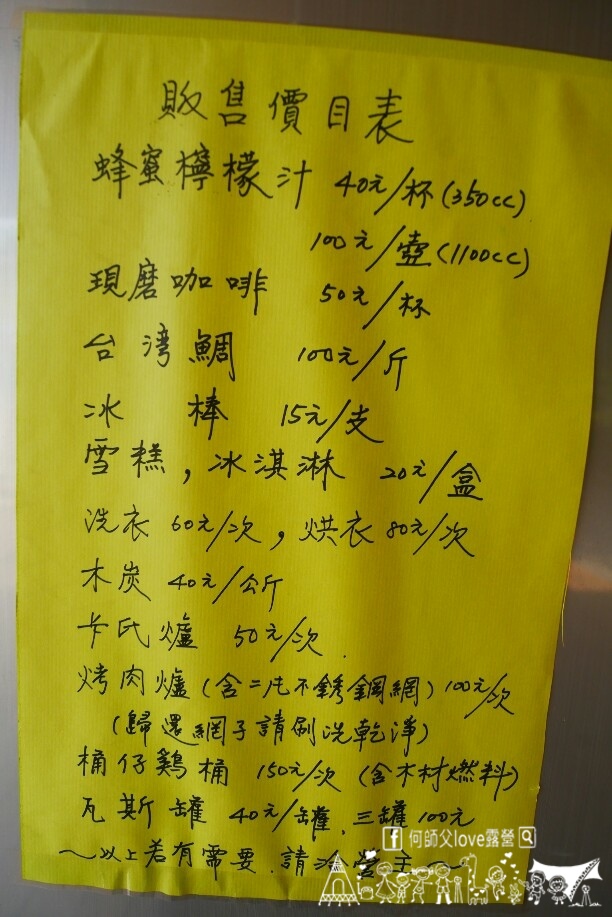 販售價目表
蜂蜜檸檬汁 40元/杯(350cc)
100元/壺(1100cc)
現磨咖啡 50元/杯
台灣鯛 100元/斤
冰棒 15元/支
雪糕,冰淇淋 20元/盒
洗衣60元/次,烘衣80元/次
木炭 40元/公斤
卡氏爐 50元/次.
烤肉爐(含二片不銹鋼網)100元/次
(歸還網子請刷洗乾淨)
桶仔鷄桶 150元/次(含木材燃料)
瓦斯罐 40元/罐.三罐100元
~以上若有需要.請洽營主~
f 何師父love露營